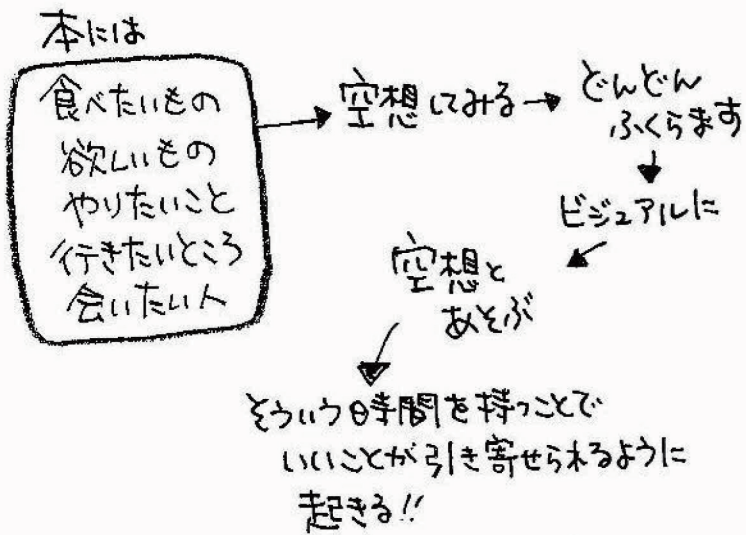 本には
食べたいもの
欲しいもの
やりたいこと
行きたいところ
会いたい人
空想してみる
どんどん
ふくらます
ビジュアルに
空想と
あそぶ
そういう時間を持つことで
いいことが引き寄せられるように
起きる!!